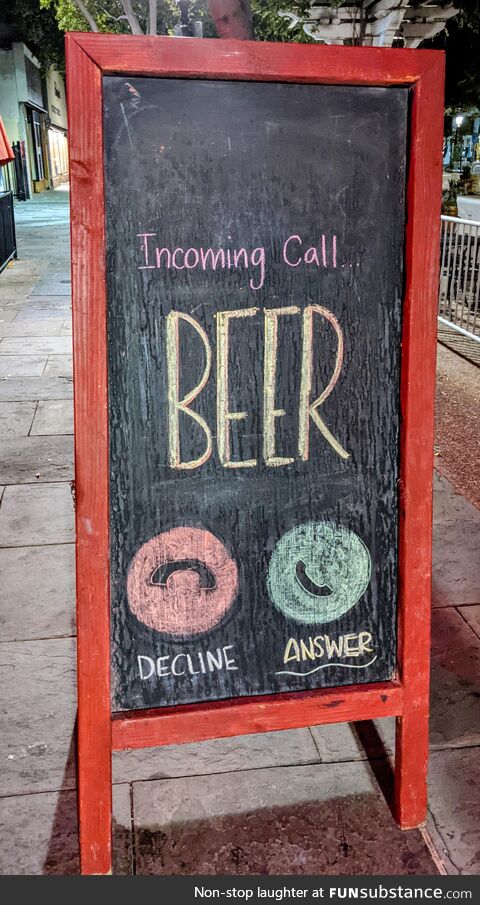 Incoming Call...
BEER
DECLINE ANSWER
Non-stop laughter at FUNsubstance.com